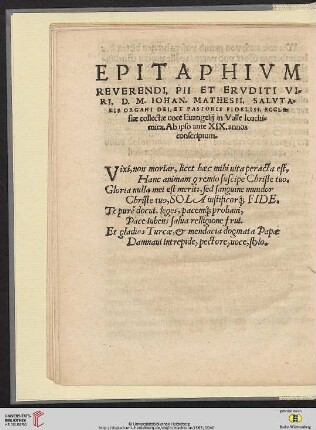 EPITAPHIVM
REVERENDI, PII ET ERVDITI VI-
RI, D. M. IOHAN. MATHESII, SALVTA-
RIS ORGANI DEI, ET PASTORIS FIDELISS. ECCLE-
siæ collectæ voce Euangelij in Valle Ioachi-
mica: Ab ipso ante XIX. annos
conscriptum.
Vixi, non moriar, licet hæc mihi vita peracta est,
Hanc animam gremio suscipe Christe tuo.
Gloria nulla mei est meriti, sed sanguine mundor
Christe tuo, SOLA iustificorq́; FIDE,
Te purè docui, leges, pacemq́; probaui,
Pace lubens salua relligione frui.
Et gladios Turcæ, & mendacia dogmata Papæ
Damnaui intrepidè, pectore, uoce, stylo.
UNIVERSITÄTS-
BIBLIOTHEK
HEIDELBERG
© Universitätsbibliothek Heidelberg
gefördert durch
Baden-Württemberg